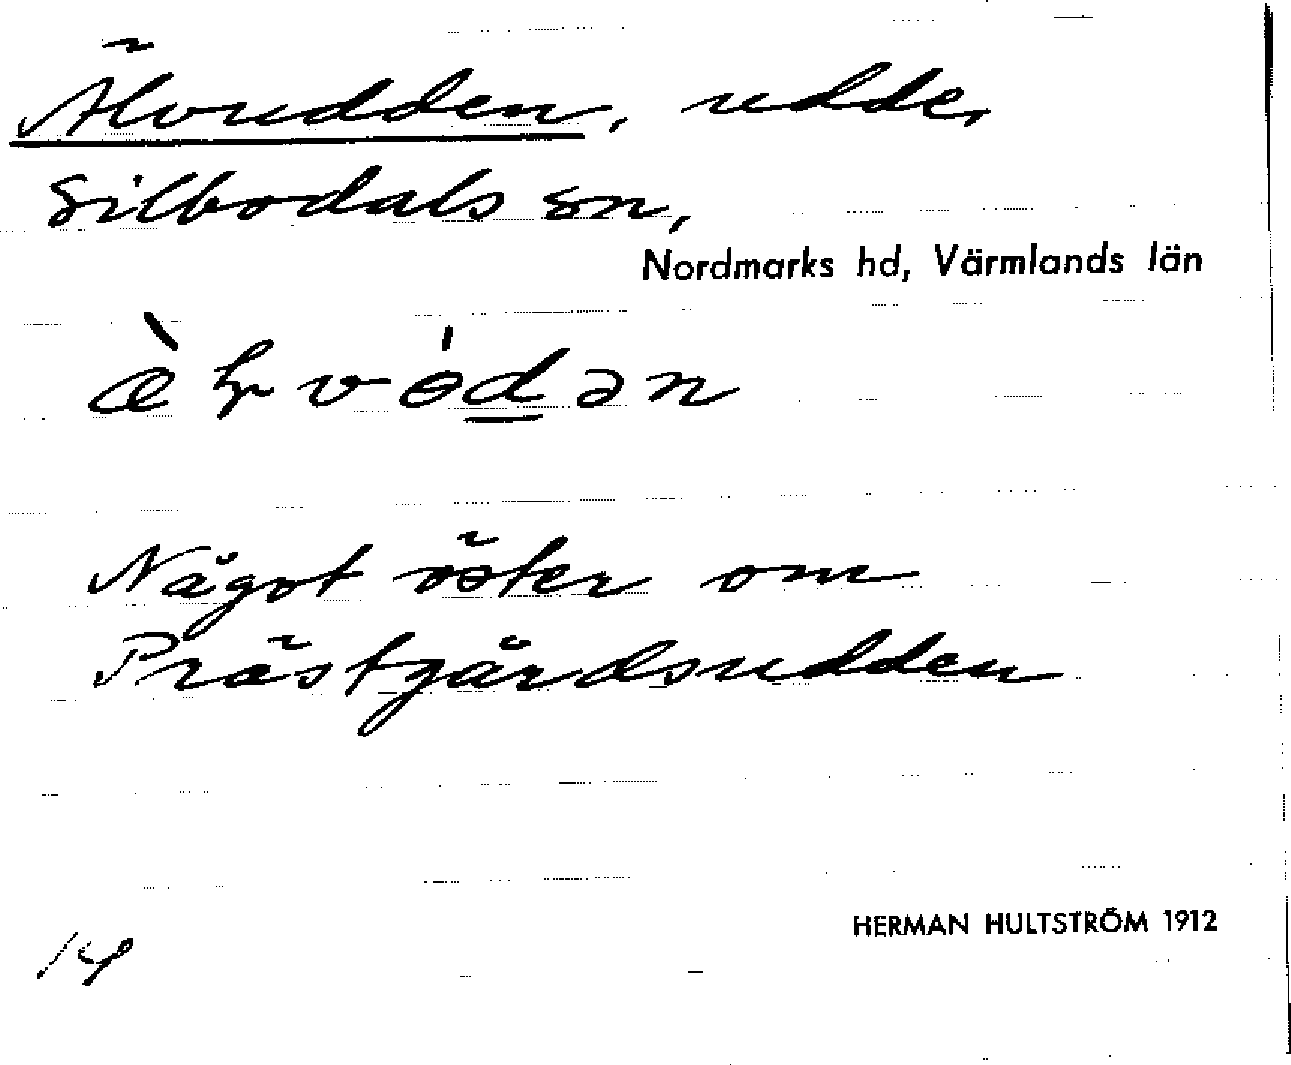 Älvudden, udde,
Silbodals sn,
Nordmarks hd, Värmlands län
Något öster om
Prästgårdsudden
HERMAN HULTSTRÖM 1912
14